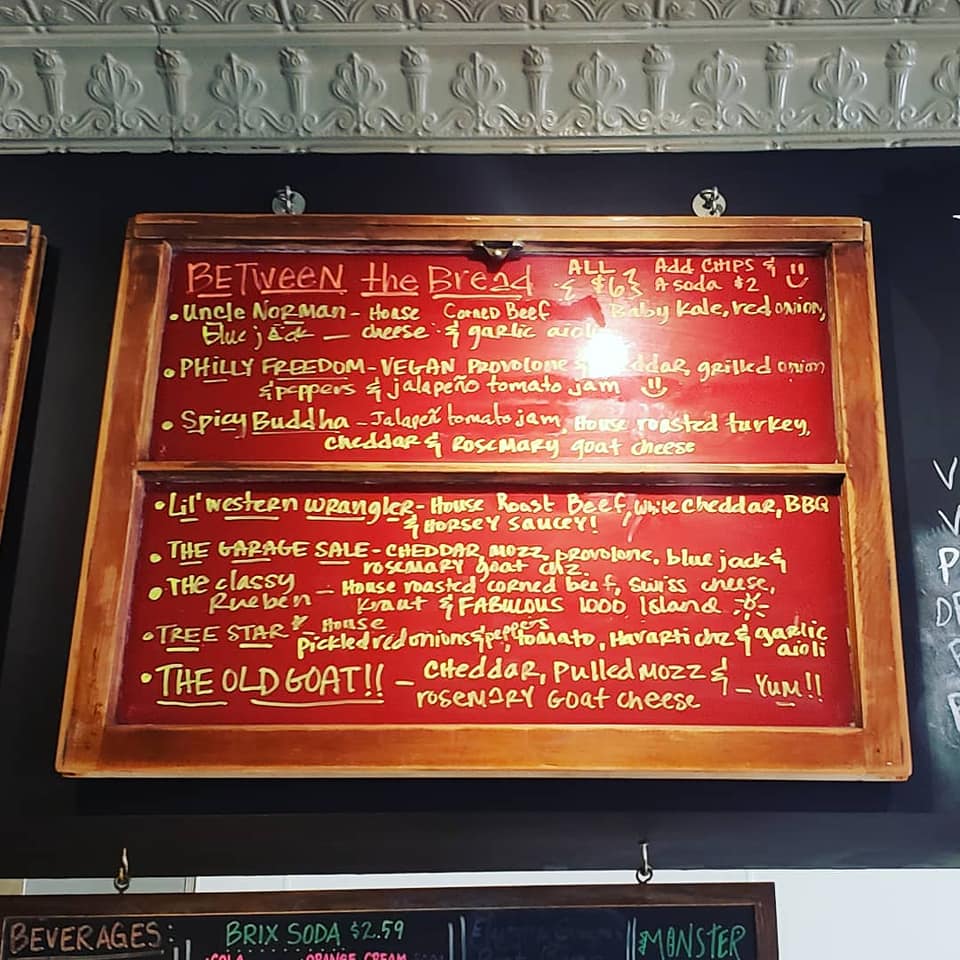 BETWEEN the Bread ALL { $6 } Add CHIPS & A soda $2
• Uncle Norman - House Corned Beef Baby Kale, red onion,
blue jack — cheese & garlic aioli
• PHILLY FREEDOM - VEGAN PROVOLONE & cheddar, grilled onion
& peppers & jalapeño tomato jam
• Spicy Buddha - Jalapeñ tomato jam, House roasted turkey,
cheddar & Rosemary goat cheese
• Lil' western wrangler - House Roast Beef, white cheddar, BBQ
& HORSEY SAUCEY!
• THE GARAGE SALE - CHEDDAR, mozz, provolone, blue jack &
rosemary goat chz.
• THE classy Rueben — House roasted corned beef, Swiss cheese,
kraut & FABULOUS 1000 Island
• TREE STAR * House pickled red onions & peppers, tomato, Havarti chz & garlic aioli
• THE OLD GOAT!! — CHEDDAR, Pulled mozz &
rosemary Goat cheese — YUM!!
BEVERAGES:
BRIX SODA $2.59
COLA ORANGE CREAM
MONSTER